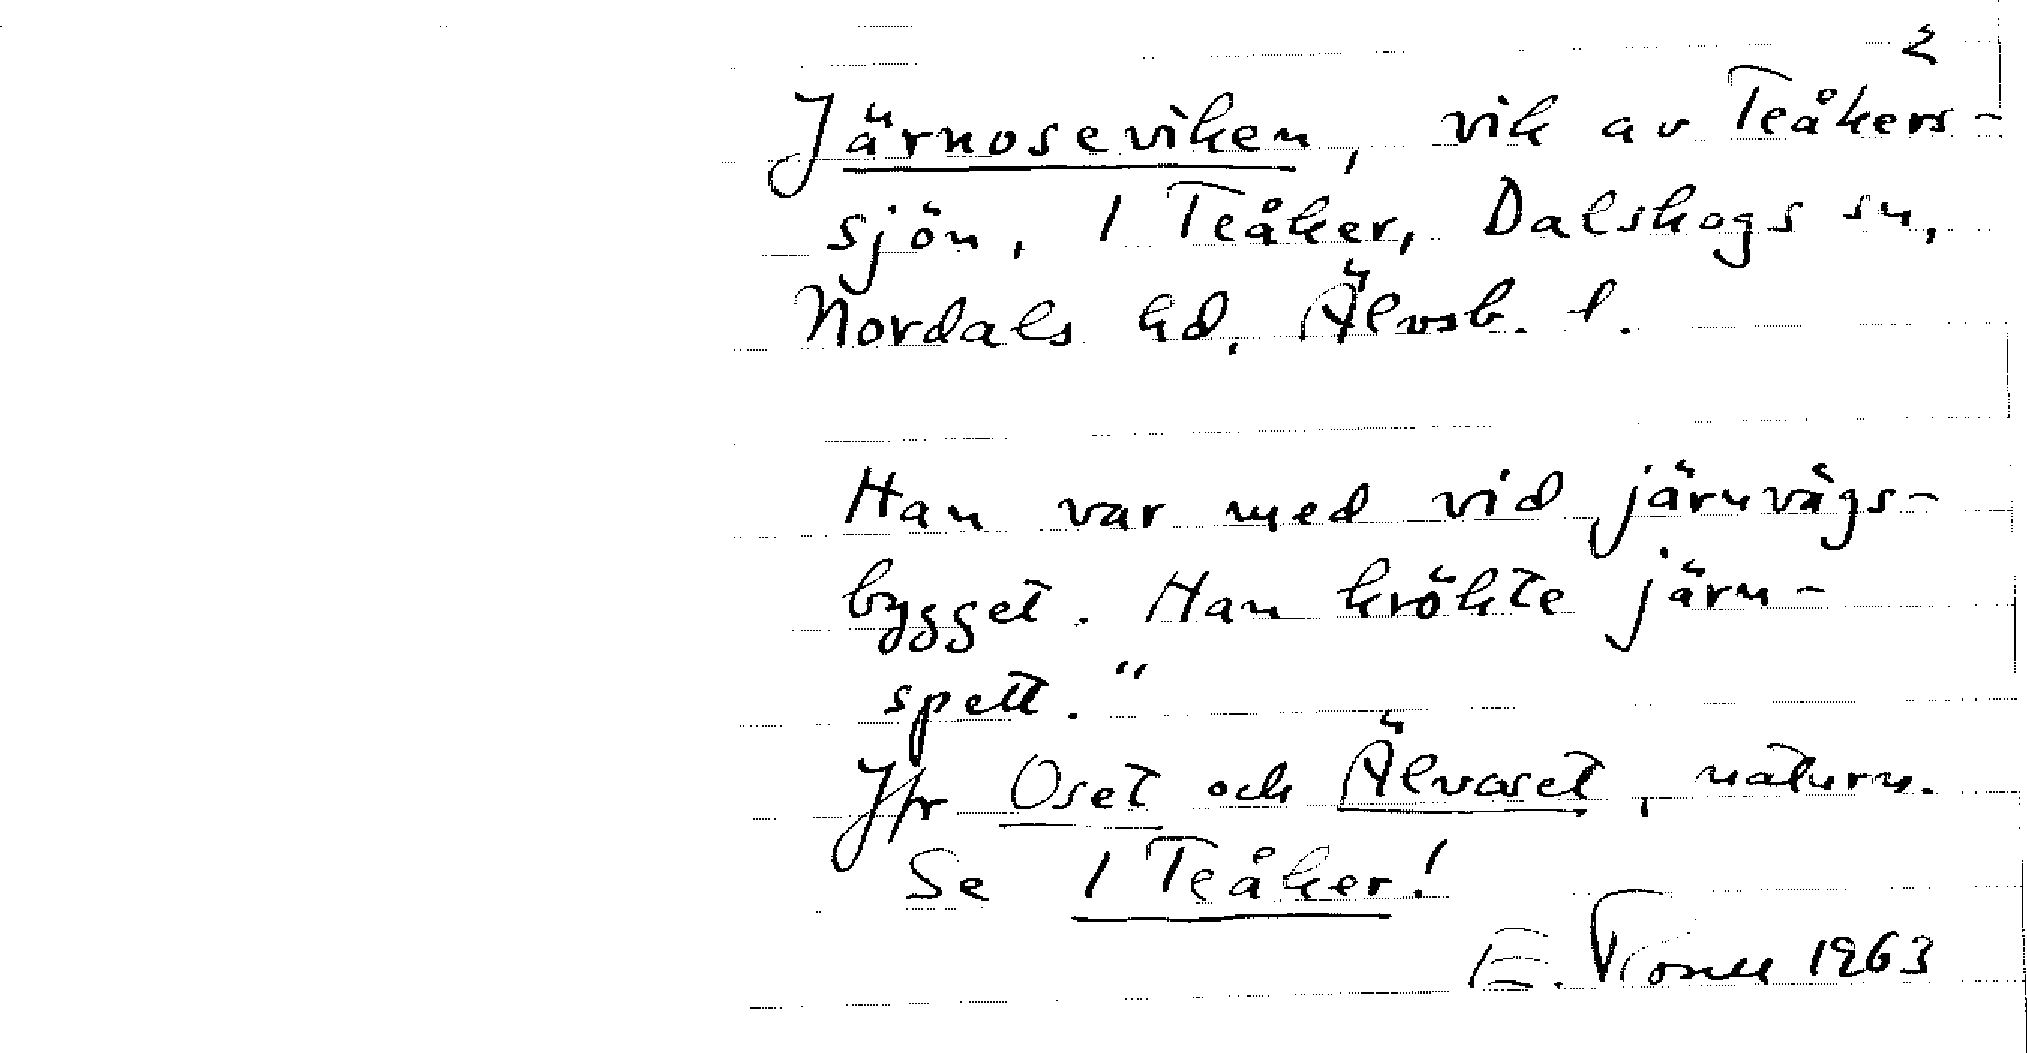 2
Järnoseviken, vik av Teåkers-
sjön, 1 Teåker, Dalskogs sn,
Nordals hd, Älvsb. l.
Han var med vid järnvägs-
bygget. Han krökte järn-
spett."
Jfr Oset och Älvaset, naturn.
Se 1 Teåker!
E. 1963